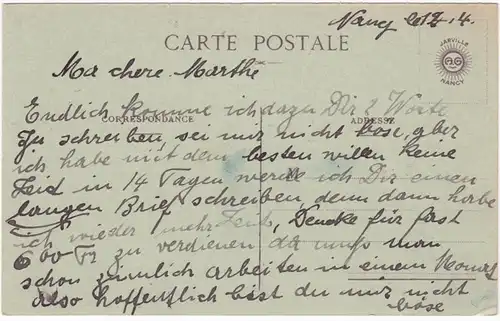 Nancy le 17. 4.
CARTE POSTALE
JARVILLE
NANCY
Ma chere Marthe
Endlich komme ich dazu Dir 2 Worte
CORRESPONDANCE
ADRESSE
zu schreiben sei mir nicht böse, aber
ich habe mit dem besten willen keine
Zeit in 14 Tagen werde ich Dir einen
langen Brief schreiben, denn dann habe
ich wieder mehr Zeit, Dencke für fast
600 Fr zu verdienen da muss man
schon ziemlich arbeiten in einem Monat
also hoffentlich bist du mir nicht
böse